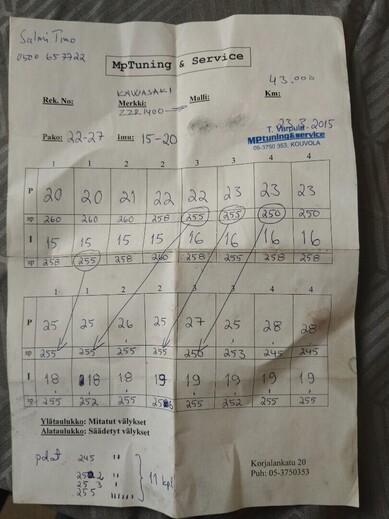 Salmi Timo
0500 657722
MpTuning & Service
43.000
KAWASAKI
Rek. No: Merkki: Malli: Km:
ZZR1400
23.3.2015
T. Varpula
MPtuning&service
05-3750 353, KOUVOLA
Pako: 22-27 Imu: 15-20
1 1 2 2 3 3 4 4
P 20 20 21 22 22 23 23 23
sp 260 260 260 258 255 255 250 250
I 15 15 15 15 16 16 16 16
sp 258 255 258 260 258 258 258 258
1 1 2 2 3 3 4 4
P 25 25 26 25 27 25 28 28
sp 255 255 255 255 250 253 245 245
I 18 18 18 19 19 19 19 19
sp 255 252 255 255 252 255 255
Ylätaulukko: Mitatut välykset
Alataulukko: Säädetyt välykset
palat 245 "
252 "
253 '
255
11 kpl
Korjalankatu 20
Puh: 05-3750353